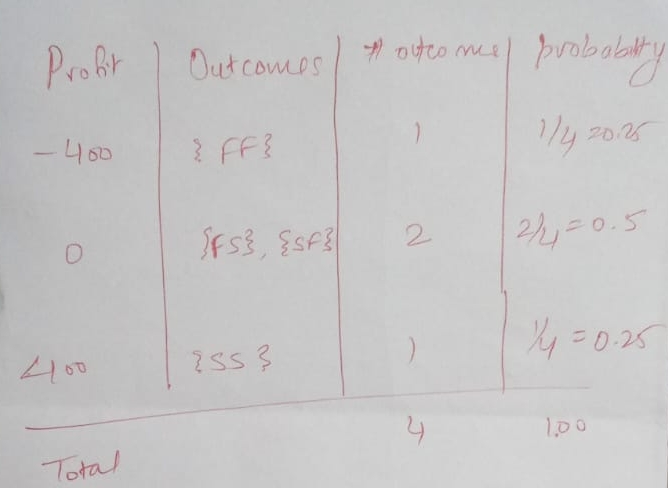 Profit Outcomes # outcome probabilty
-400 {FF} 1 1/4 = 0.25
0 {FS}, {SF} 2 2/4 = 0.5
400 {SS} 1 1/4 = 0.25
4 1.00
Total